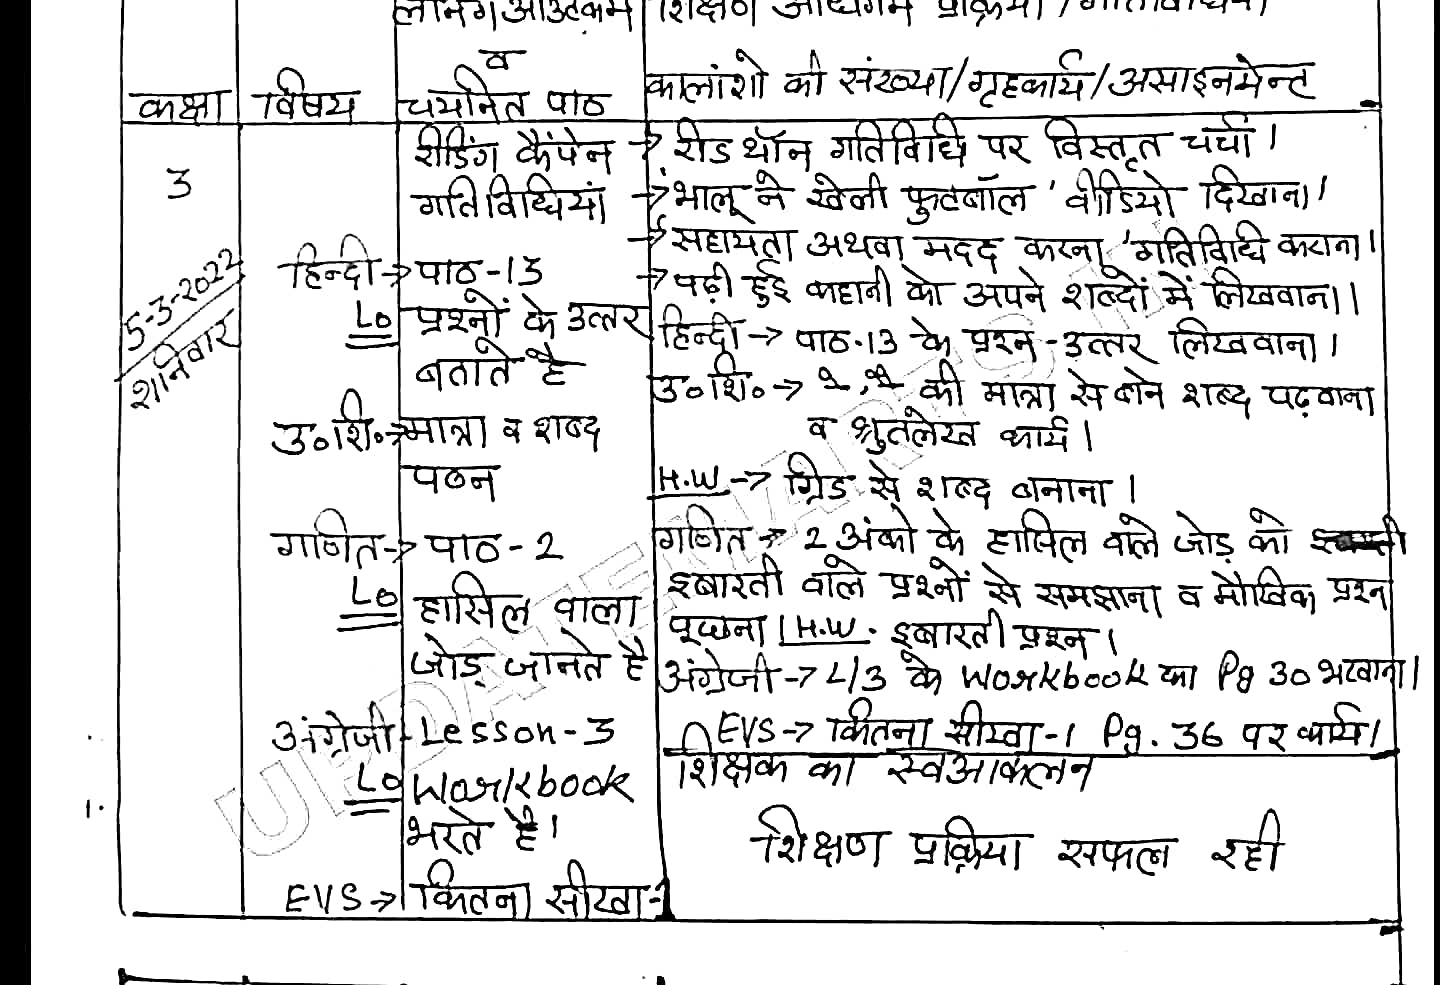 लर्निंग आउटकम शिक्षण अधिगम प्रक्रिया / गतिविधियां
व
कक्षा विषय चयनित पाठ कालांशो की संख्या/गृहकार्य/असाइनमेन्ट
3
5-3-2022
शनिवार
रीडिंग कैंपेन
गतिविधियां
हिन्दी→ पाठ-13
Lo प्रश्नों के उत्तर
बताते है
उ०शि०→ मात्रा व शब्द
पठन
गणित→ पाठ-2
Lo हासिल वाला
जोड़ जानते है
अंग्रेजी- Lesson-3
Lo Workbook
भरते है।
EVS→ कितना सीखा-1
→ रीड थॉन गतिविधि पर विस्तृत चर्चा।
→ 'भालू ने खेली फुटबॉल' वीडियो दिखाना।
→ 'सहायता अथवा मदद करना' गतिविधि कराना।
→ पढ़ी हुई कहानी को अपने शब्दों में लिखवाना।
हिन्दी→ पाठ-13 के प्रश्न-उत्तर लिखवाना।
उ०शि०→ े, ै की मात्रा से बने शब्द पढ़वाना
व श्रुतलेख कार्य।
H.W→ ग्रिड से शब्द बनाना।
गणित→ 2 अंको के हासिल वाले जोड़ को
इबारती वाले प्रश्नों से समझाना व मौखिक प्रश्न
पूछना। H.W. इबारती प्रश्न।
अंग्रेजी→ L/3 के Workbook का Pg 30 भरवाना।
EVS→ कितना सीखा-1 Pg. 36 पर कार्य।
शिक्षक का स्वआकलन
शिक्षण प्रक्रिया सफल रही
1.